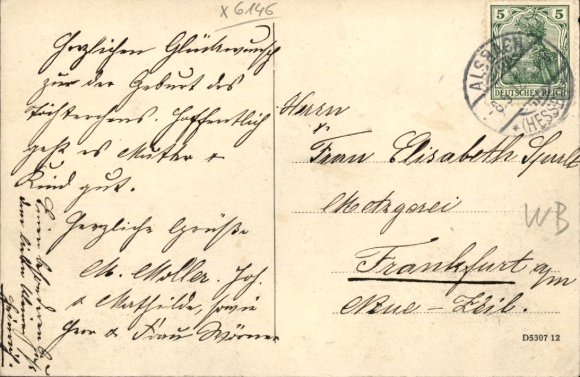 X 6146
Herzlichen Glückwunsch
zur der Geburt des
Töchterchens. Hoffentlich
geht es Mutter &
Kind gut.
Herzliche Grüße
M. Moller. Joh.
& Mathilde, sowie
Herr & Frau Wörner
5 5
DEUTSCHES REICH
ALSBACH
(HESSEN)
Herrn
u.
Frau Elisabeth
Metzgerei
WB
Frankfurt a/m
Neue-Zeil.
D5307 12